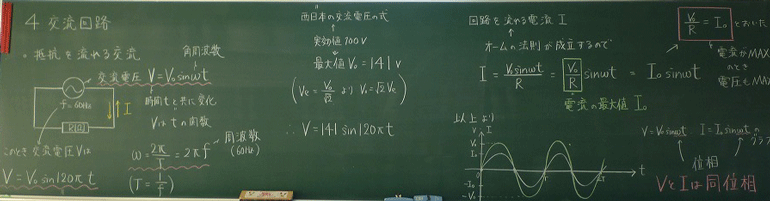 4 交流回路
・抵抗を流れる交流
角周波数
交流電圧 V=V₀sinωt
f=60Hz
I
R[Ω]
時間tと共に変化
Vはtの関数
このとき交流電圧Vは
V=V₀sin120πt
ω=2π/T=2πf
周波数
(60Hz)
(T=1/f)
西日本の交流電圧の式
実効値100V
最大値V₀=141V
(Ve=V₀/√2 より V₀=√2Ve)
∴V=141sin120πt
回路を流れる電流 I
オームの法則が成立するので
I=V₀sinωt/R=V₀/R sinωt=I₀sinωt
電流の最大値 I₀
V₀/R=I₀ とおいた
電流がMAX
のとき
電圧もMAX
以上より
V
I
V₀
I₀
0
-I₀
-V₀
T
2T
t
V=V₀sinωt I=I₀sinωtの
グラフ
位相
VとIは同位相